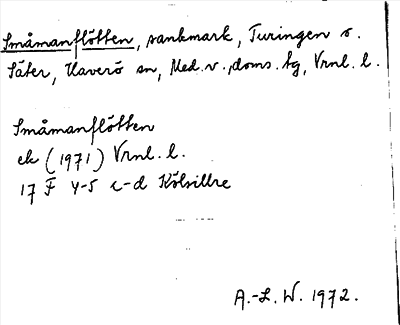 Småmanflötten, sankmark, Turingen s.
Säter, Haverö sn, Med. v., doms. tg, Vrnl. l.
Småmanflötten
ek (1971) Vrnl. l.
17 F 4-5 c-d Kölsillre
A.-L. W. 1972.